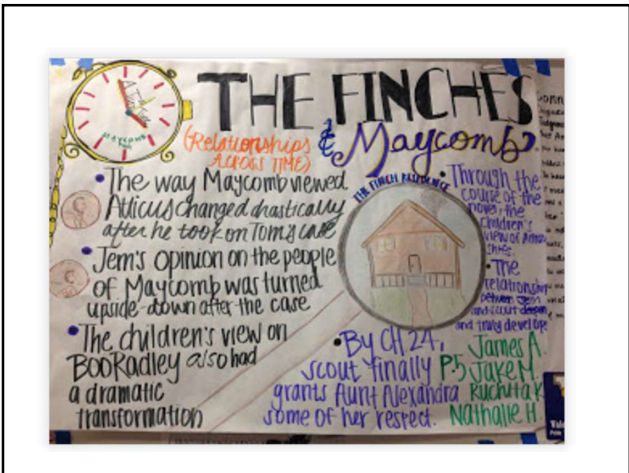 THE FINCHES
(Relationships
ACROSS TIME)
& Maycomb
MAYCOMB
• The way Maycomb viewed
Atticus changed drastically
after he took on Tom's case
• Jem's opinion on the people
of Maycomb was turned
upside-down after the case
• The children's view on
Boo Radley also had
a dramatic
transformation
THE FINCH RESIDENCE
• Through the
course of the
novel, the
children's
view of
• The
relationship
between Jem
and scout deepen
and truly develop
• By CH 24,
scout finally
grants Aunt Alexandra
some of her respect.
P.5
James A.
Jake M.
Ruchita K
Nathalie H.